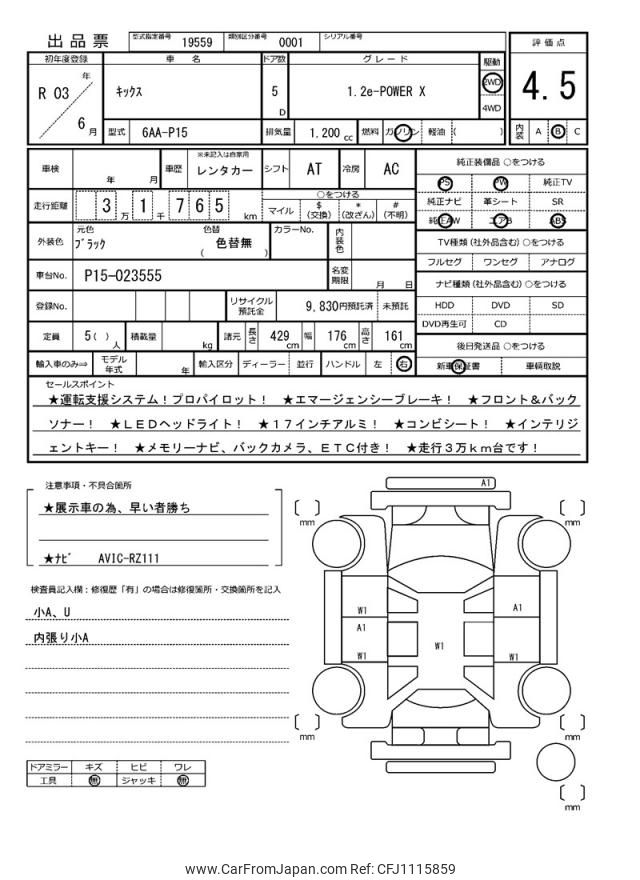 出品票
型式指定番号 19559 類別区分番号 0001 シリアル番号
評価点
4.5
内装 A B C
初年度登録 車名 ドア数 グレード 駆動
R 03 年 6 月
キックス
5 D
1.2e-POWER X
2WD
4WD
型式 6AA-P15 排気量 1,200 cc 燃料 ガソリン 軽油 ( )
車検 年 月 車歴 ※未記入は自家用 レンタカー シフト AT 冷房 AC
走行距離 3 万 1 千 7 6 5 km
○をつける
マイル $ (交換) * (改ざん) # (不明)
外装色 元色 ブラック 色替 色替無 ( ) カラーNo. 内装色
車台No. P15-023555 名変期限 月 日
登録No. リサイクル預託金 9,830円預託済 未預託
定員 5( ) 人 積載量 kg 諸元 長さ 429 cm 幅 176 cm 高さ 161 cm
輸入車のみ⇒ モデル年式 年 輸入区分 ディーラー 並行 ハンドル 左 右
純正装備品 ○をつける
PS PW 純正TV
純正ナビ 革シート SR
純正AW エアB ABS
TV種類(社外品含む)○をつける
フルセグ ワンセグ アナログ
ナビ種類(社外品含む)○をつける
HDD DVD SD
DVD再生可 CD
後日発送品 ○をつける
新車保証書 車輌取説
セールスポイント
★運転支援システム！プロパイロット！ ★エマージェンシーブレーキ！ ★フロント＆バック
ソナー！ ★ＬＥＤヘッドライト！ ★１７インチアルミ！ ★コンビシート！ ★インテリジ
ェントキー！ ★メモリーナビ、バックカメラ、ＥＴＣ付き！ ★走行３万ｋｍ台です！
注意事項・不具合箇所
★展示車の為、早い者勝ち
★ﾅﾋﾞ AVIC-RZ111
検査員記入欄：修復歴「有」の場合は修復箇所・交換箇所を記入
小A、U
内張り小A
ドアミラー キズ ヒビ ワレ
工具 無 ジャッキ 無
A1
mm
mm
W1
A1
A1
W1
W1
W1
mm
mm
mm
www.CarFromJapan.com Ref: CFJ1115859